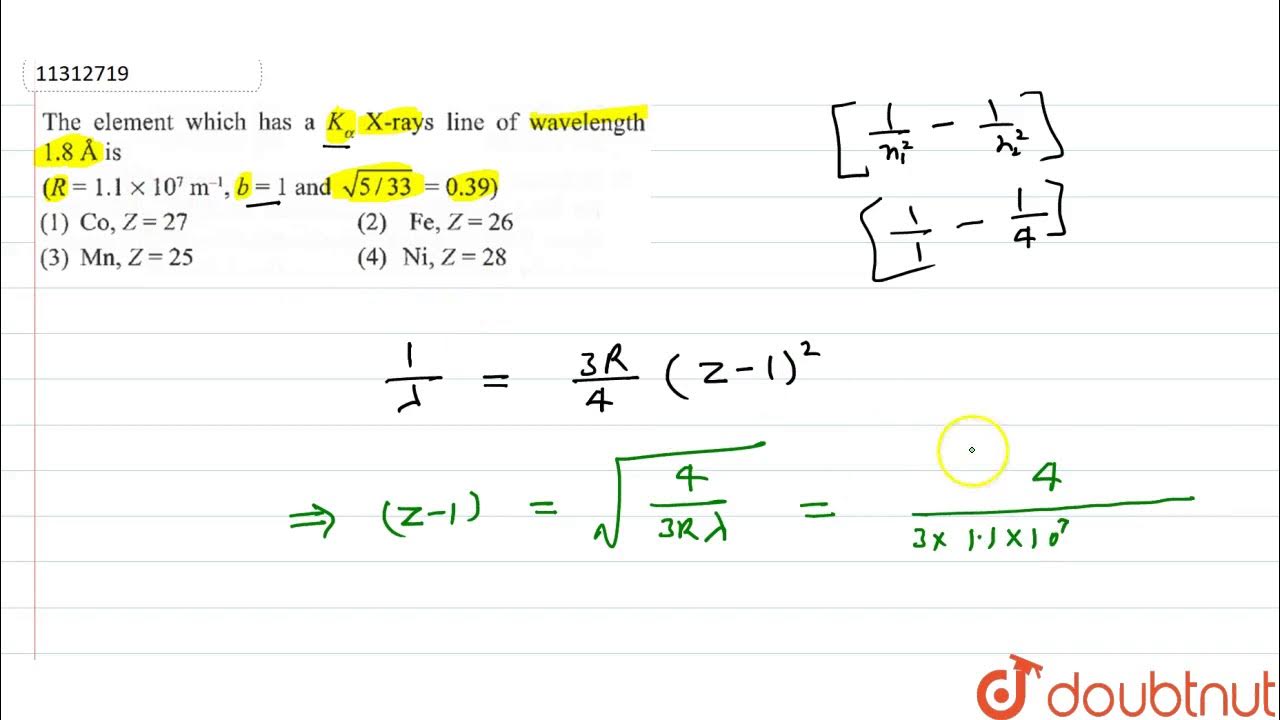 11312719
The element which has a Kα X-rays line of wavelength
1.8 Å is
(R = 1.1 × 10⁷ m⁻¹, b = 1 and √5/33 = 0.39)
(1) Co, Z = 27 (2) Fe, Z = 26
(3) Mn, Z = 25 (4) Ni, Z = 28
[1/n₁² − 1/n₂²]
[1/1 − 1/4]
1/λ = 3R/4 (Z−1)²
⇒ (Z−1) = √4/3Rλ = 4/3×1.1×10⁷
doubtnut